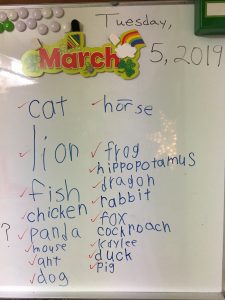 Tuesday,
March 5, 2019
cat
lion
fish
chicken
? panda
mouse
ant
dog
horse
frog
hippopotamus
dragon
rabbit
fox
cockroach
kaylee
duck
pig